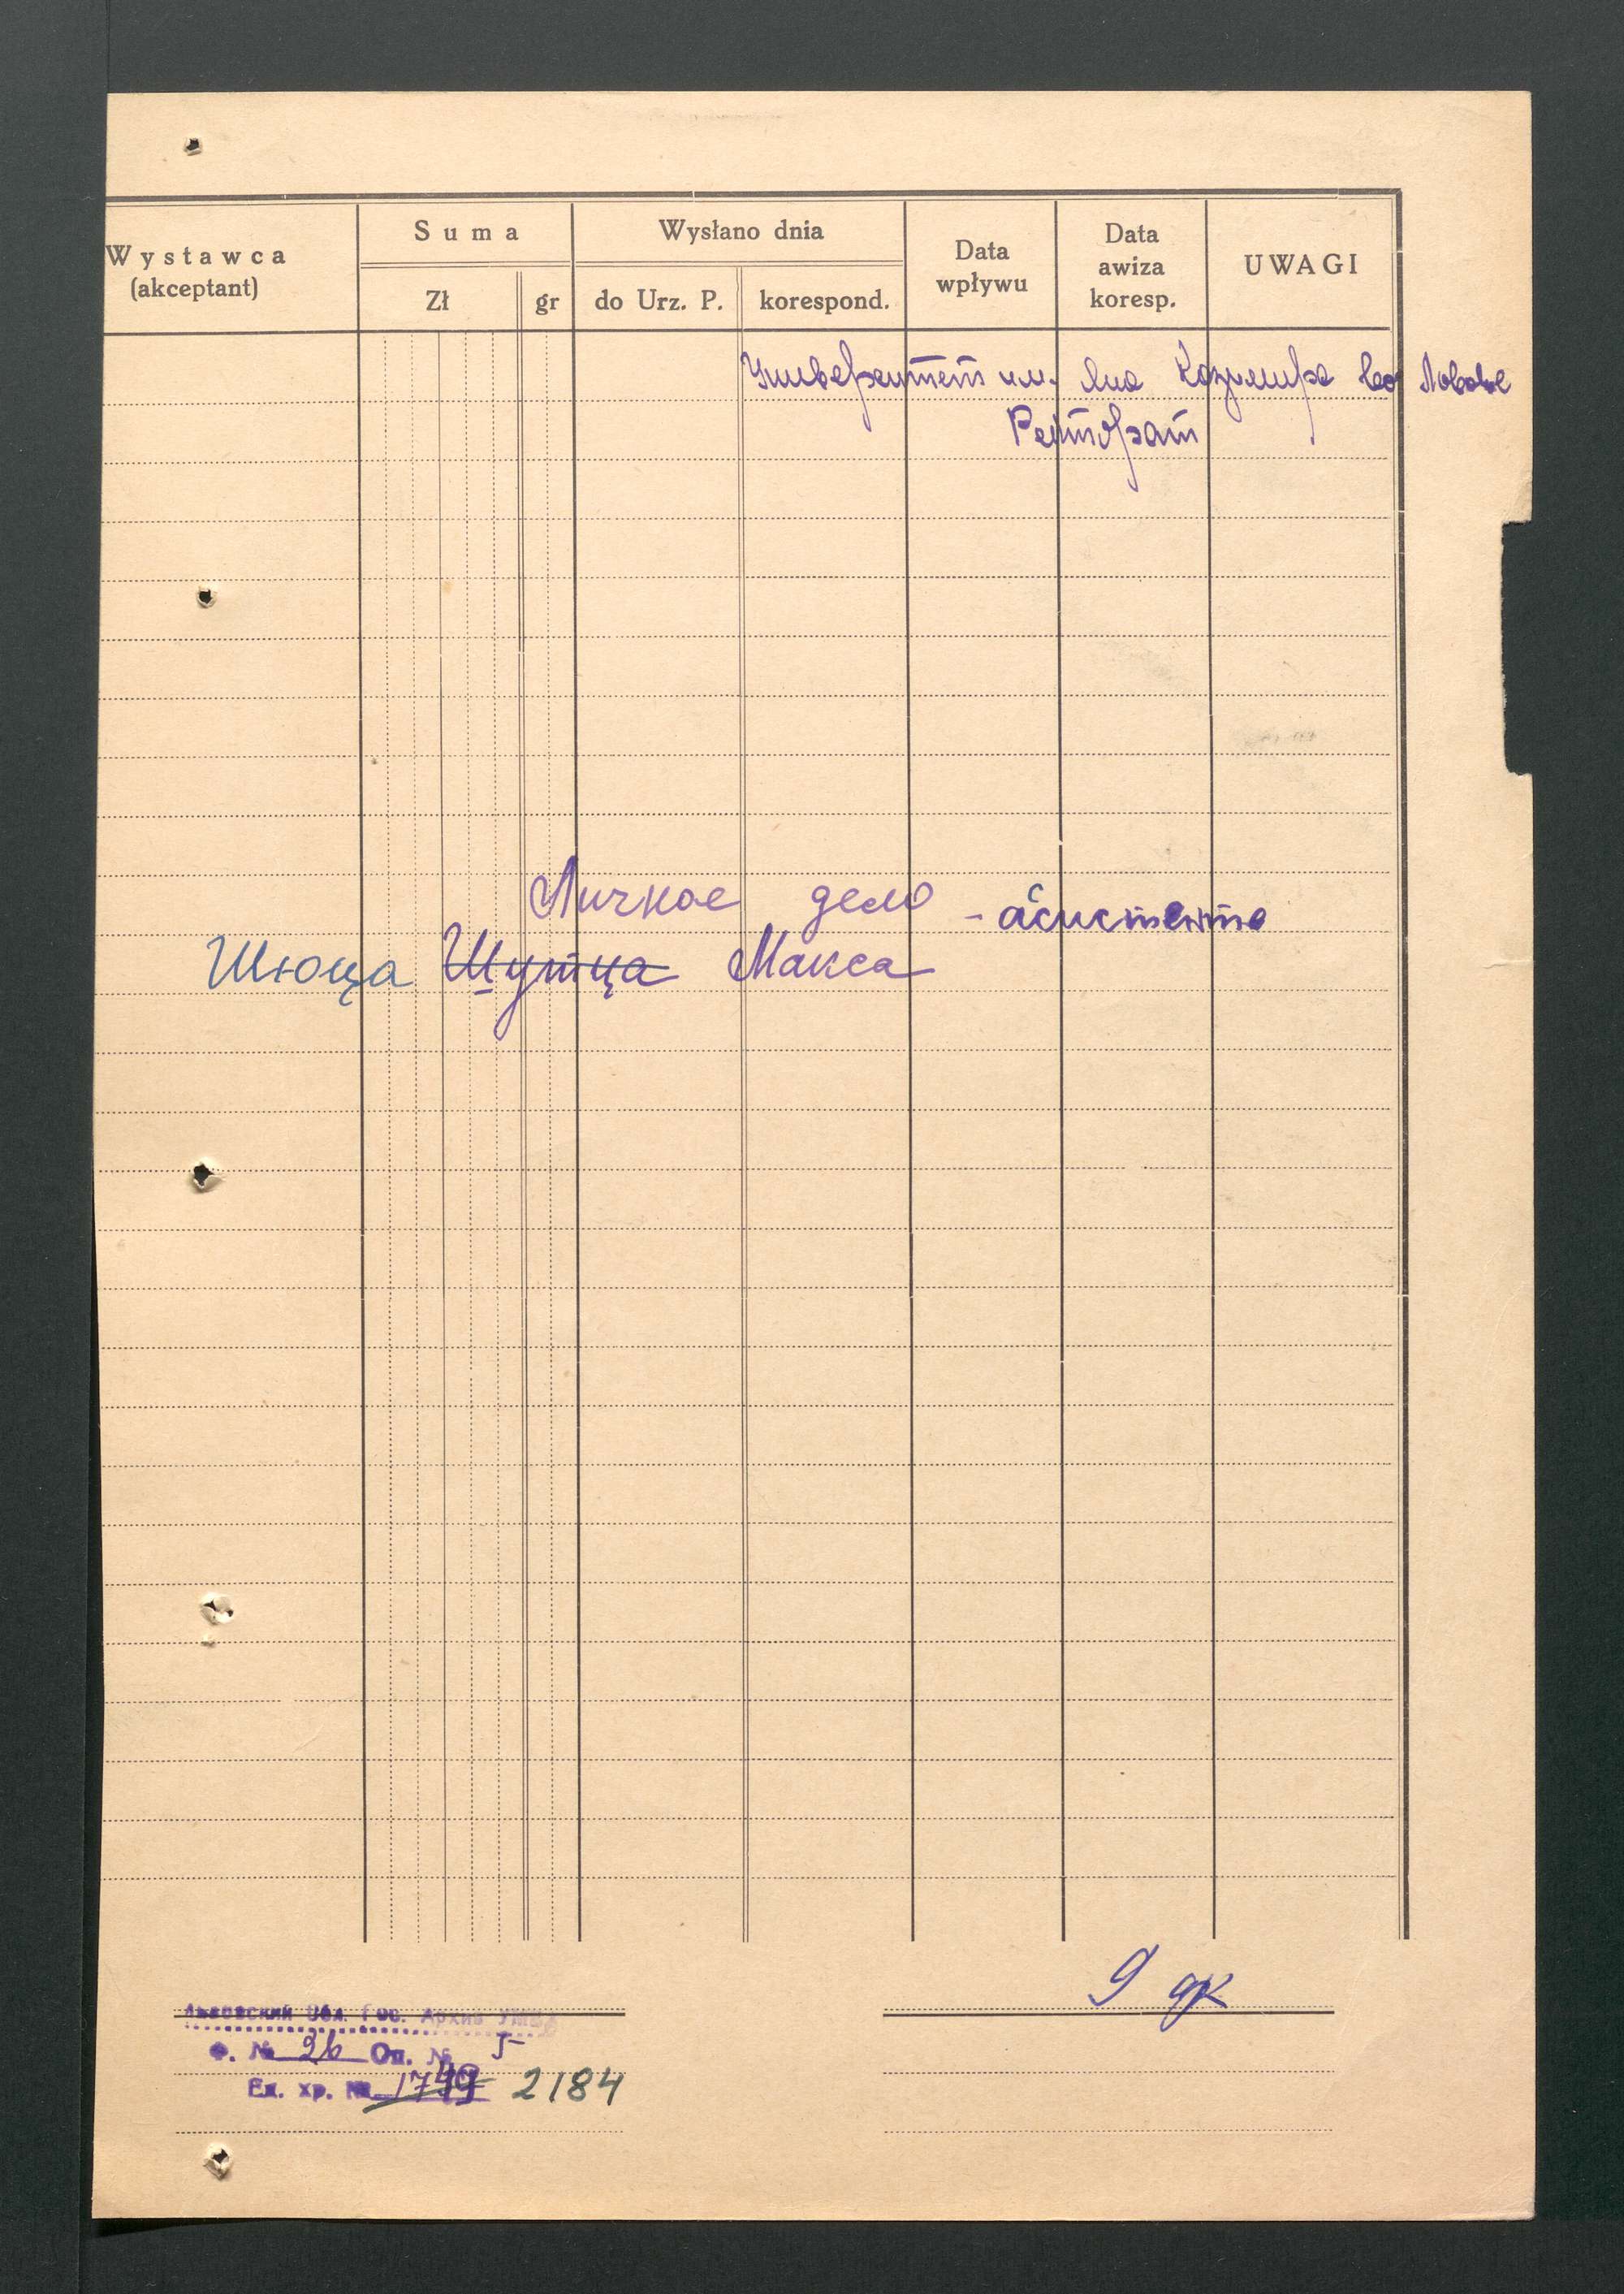 Wystawca (akceptant) Suma Zł gr Wysłano dnia do Urz. P. korespond. Data wpływu Data awiza koresp. UWAGI
Университет им. Яна Казимира во Львове
Ректорат
Личное дело - асистента
Шюца Шутца Макса
9 дк
Львовский Обл. Гос. Архив УМВД
Ф. № 26 Оп. № 5
Ед. хр. № 1749 2184